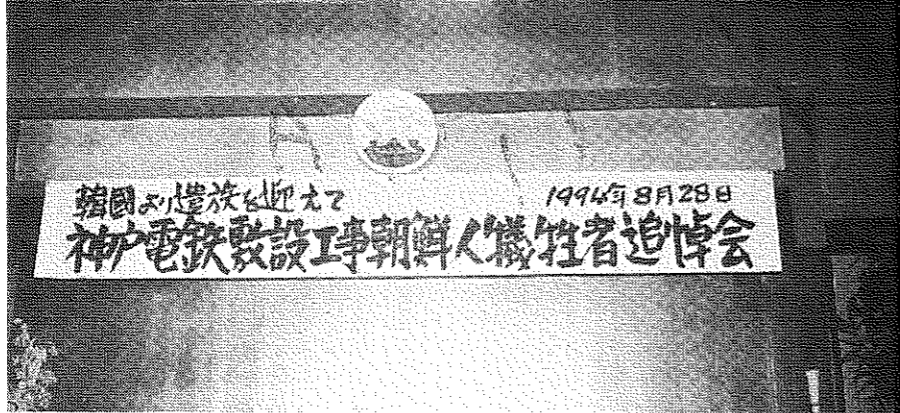 韓國より遺族を迎えて 1994年8月28日
神戸電鉄敷設工事朝鮮人犠牲者追悼会